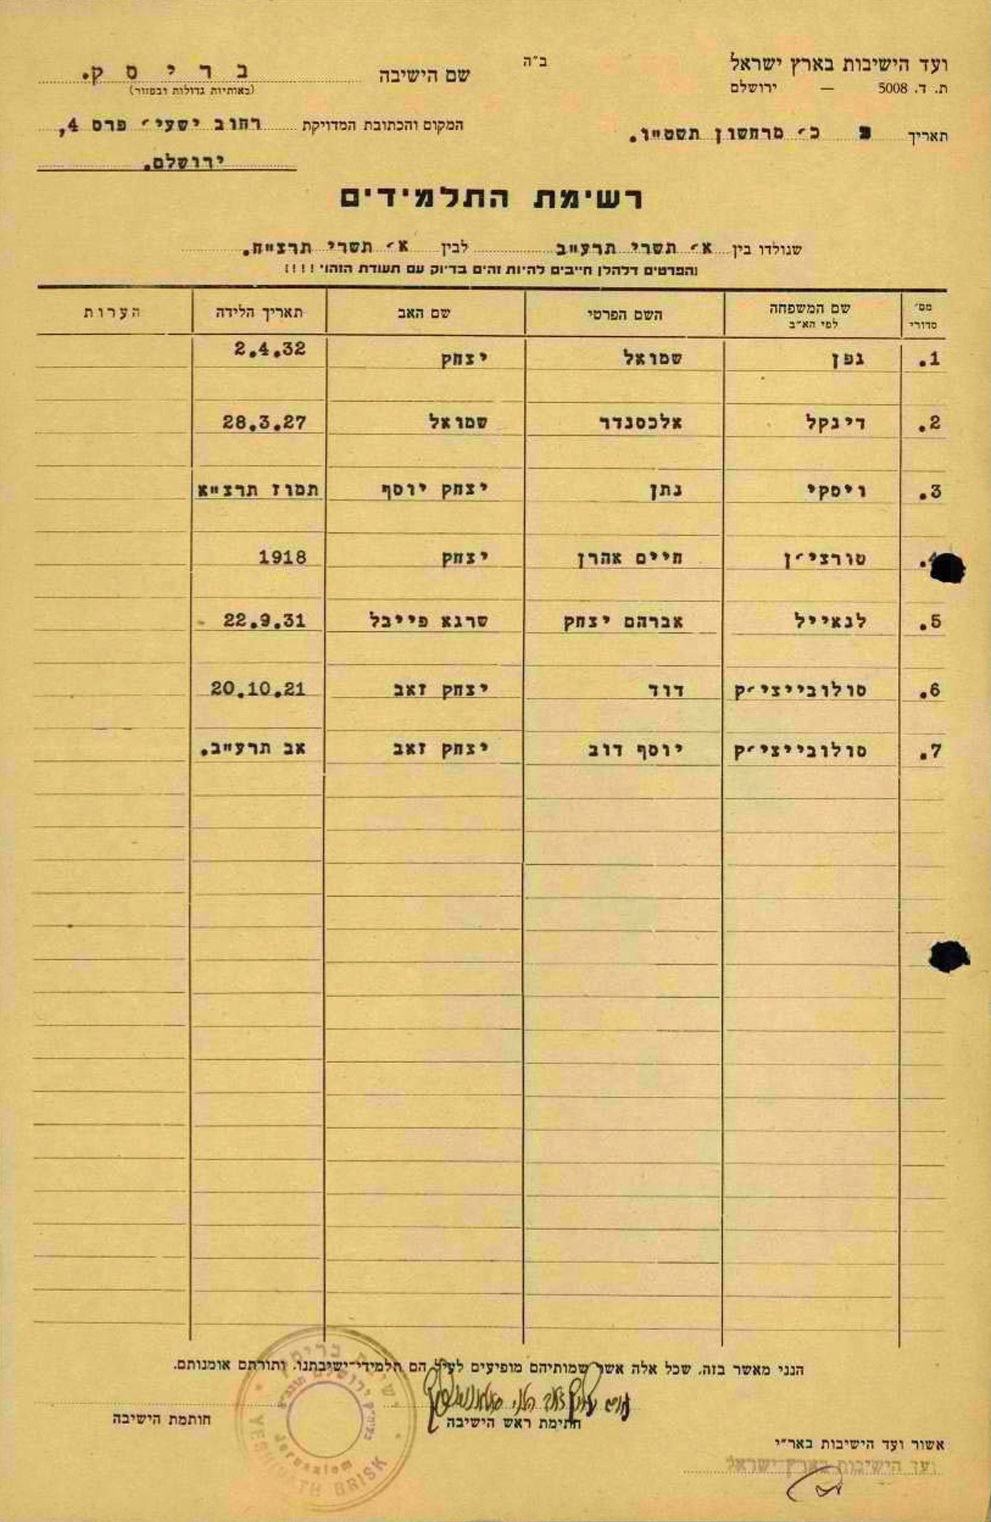 ועד הישיבות בארץ ישראל
ת. ד. 5008 — ירושלם
ב"ה
שם הישיבה בריסק.
(באותיות גדולות ובפזור)
תאריך כ׳ מרחשון תשט"ו.
המקום והכתובת המדויקת רחוב ישעי׳ פרס 4,
ירושלם.
רשימת התלמידים
שנולדו בין א׳ תשרי תרע"ב לבין א׳ תשרי תרצ"ח.
(הפרטים דלהלן חייבים להיות זהים בדיוק עם תעודת הזהוי !!!!)
מס׳ סדורי שם המשפחה לפי הא"ב השם הפרטי שם האב תאריך הלידה הערות
1. גפן שמואל יצחק 2.4.32
2. דינקל אלכסנדר שמואל 28.3.27
3. ויסקי נתן יצחק יוסף תמוז תרצ"א
4. טורצי׳ן חיים אהרן יצחק 1918
5. לנאייל אברהם יצחק שרגא פייבל 22.9.31
6. סולובייצי׳ק דוד יצחק זאב 20.10.21
7. סולובייצי׳ק יוסף דוב יצחק זאב אב תרע"ב.
הנני מאשר בזה, שכל אלה אשר שמותיהם מופיעים לעיל הם תלמידי־ישיבתנו, ותורתם אומנותם.
חתימת ראש הישיבה
חותמת הישיבה
ישיבת בריסק
ירושלים
Jerusalem
YESHIVATH BRISK
אשור ועד הישיבות באר"י
ועד הישיבות בארץ ישראל